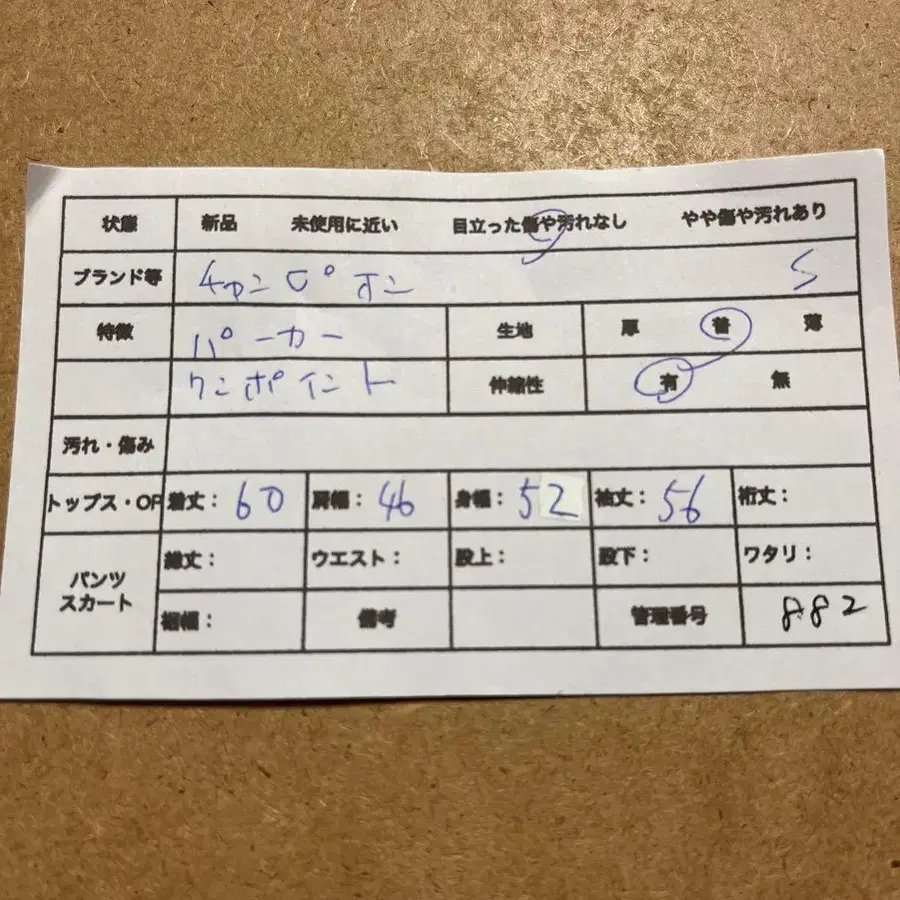 状態 新品 未使用に近い 目立った傷や汚れなし やや傷や汚れあり
ブランド等 チャンピオン S
特徴 パーカー 生地 厚 普 薄
ワンポイント 伸縮性 有 無
汚れ・傷み
トップス・OP 着丈: 60 肩幅: 46 身幅: 52 袖丈: 56 裄丈:
パンツ スカート 総丈: ウエスト: 股上: 股下: ワタリ:
裾幅: 備考 管理番号 882